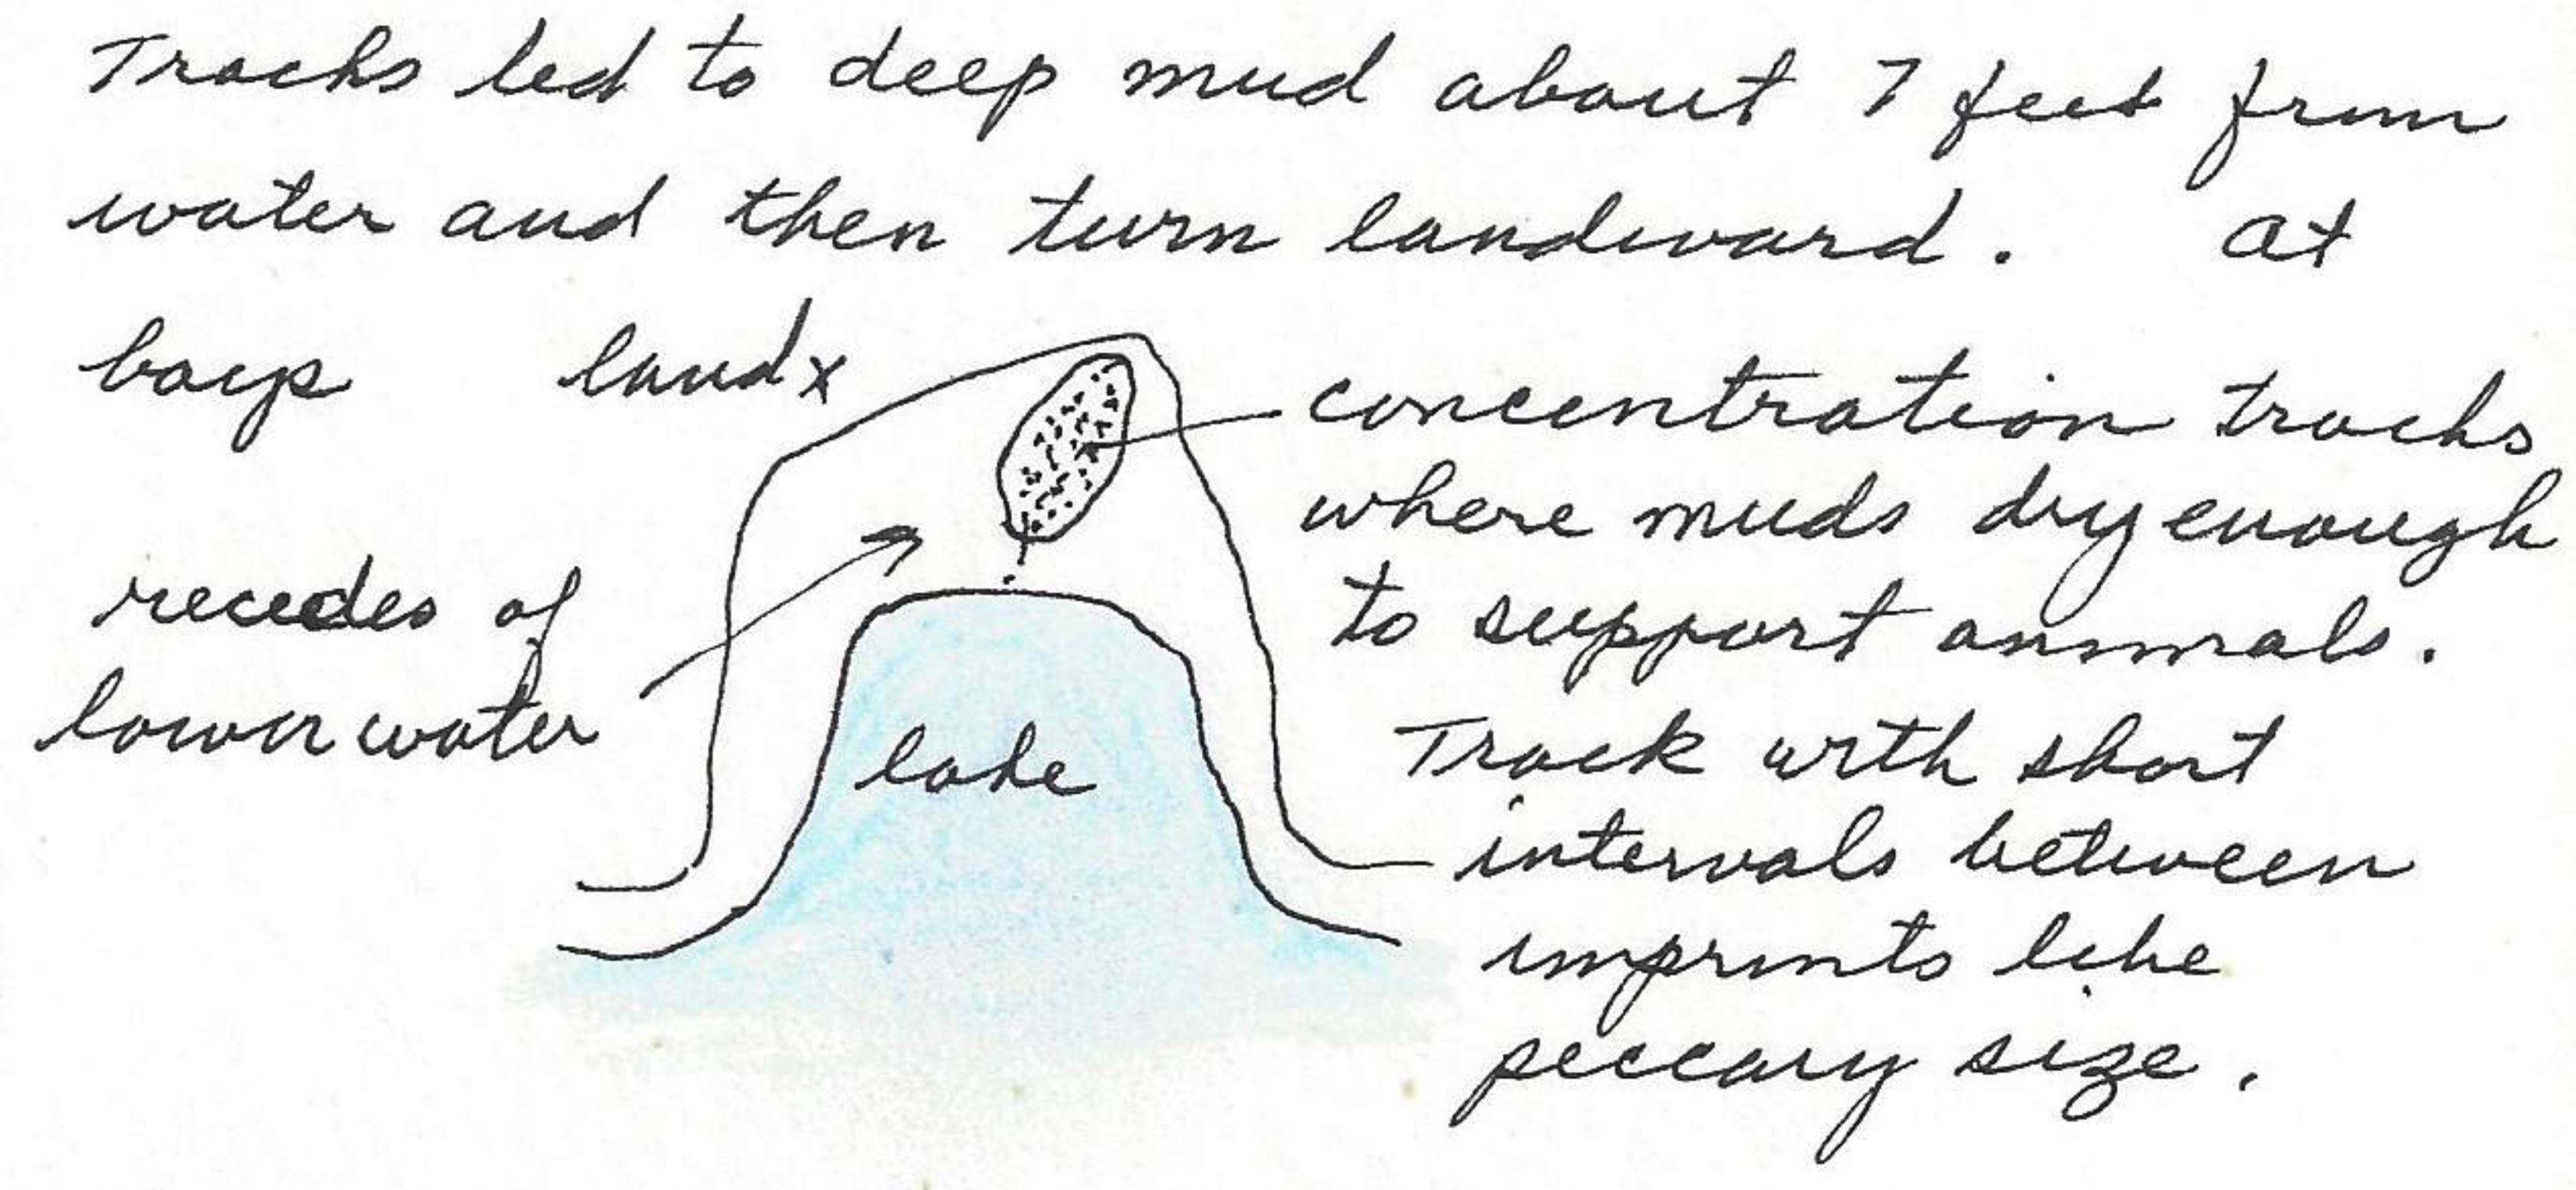 Tracks led to deep mud about 7 feet from
water and then turn landward. At
bays landx
concentration tracks
where muds dry enough
to support animals.
recedes of
lower water
lake
Track with short
intervals between
imprints like
peccary size.